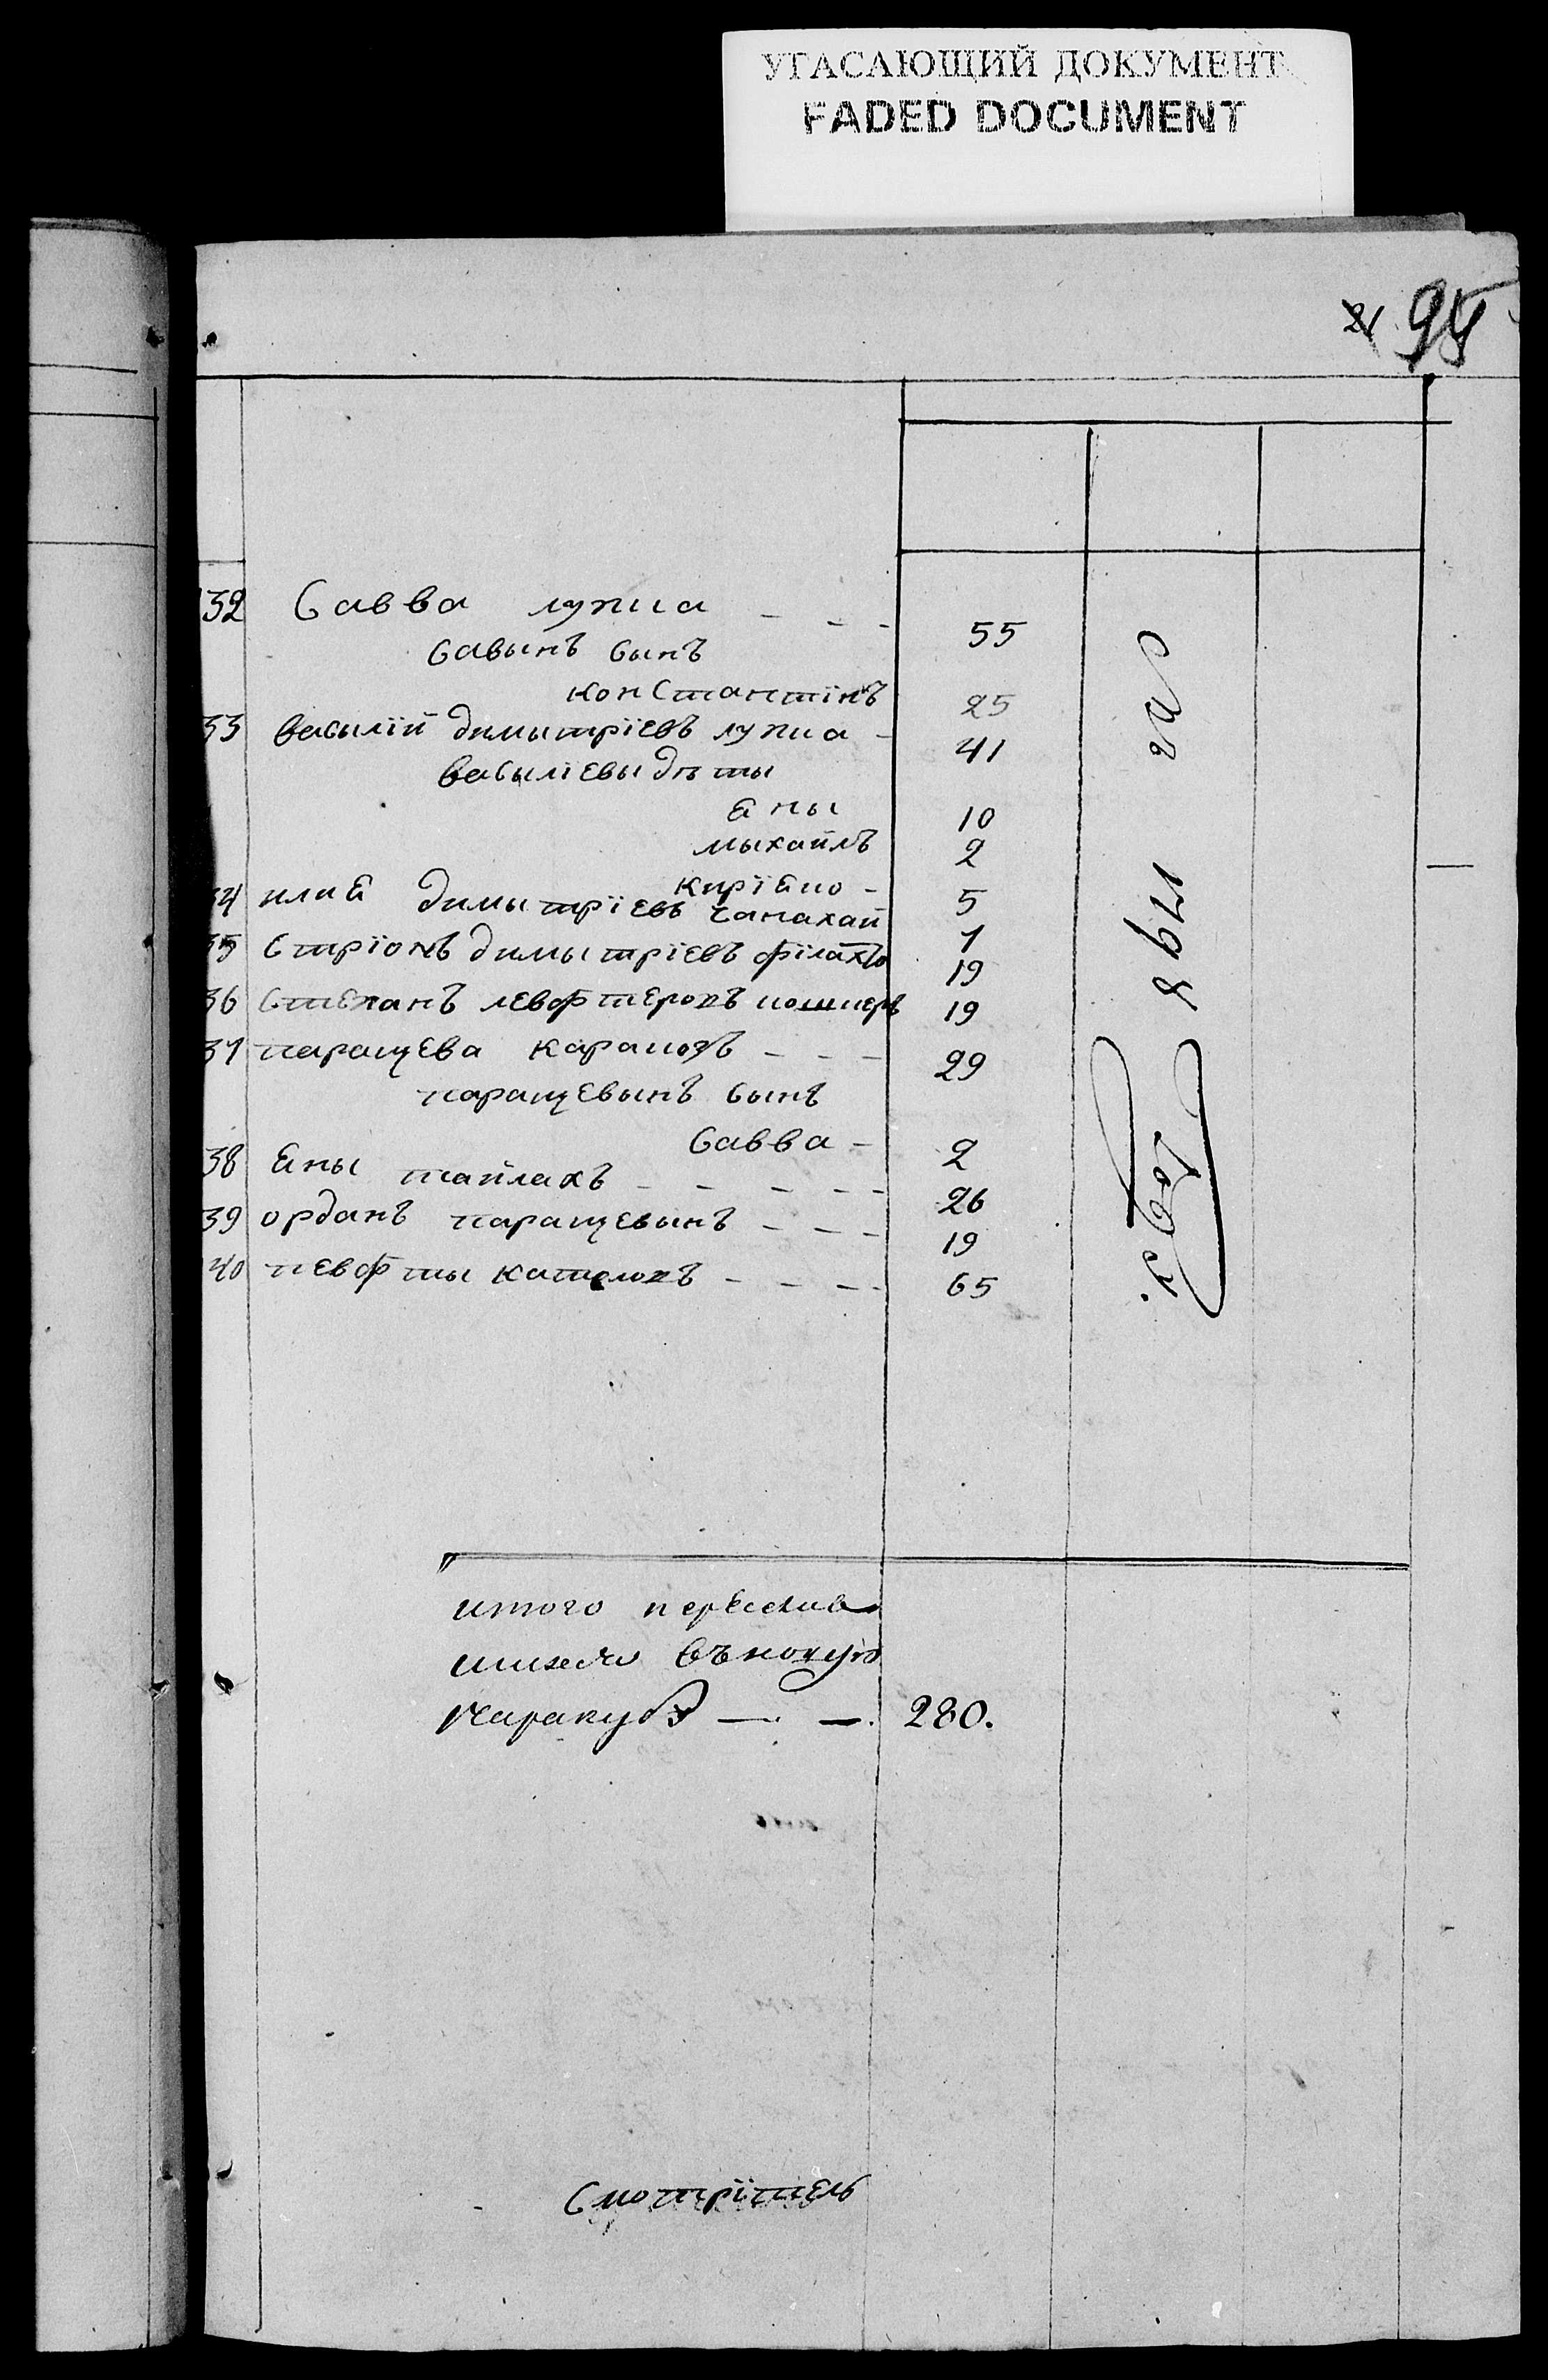 УГАСАЮЩИЙ ДОКУМЕНТ
FADED DOCUMENT
21 95
132 Савва лупиа - - - 55
савынъ сынъ
константінъ 25
33 василій димытріевъ лупиа - 41
василіевы дѣты
аны 10
мыхайлъ 2
кпріано - 5
34 илиа димытріевъ чанахай 1
35 стріонъ димытріевъ філахто 19
36 степанъ левфтеровъ 19
37 паращева - - - 29
паращевынъ сынъ
Савва - 2
38 аны тайлахъ - - - - - 26
39 орданъ паращевынъ - - - 19
40 левфты - - - - 65
въ 1798 году.
итого переселив
шихся въ новую
Каракубу — — 280.
Смотрітель